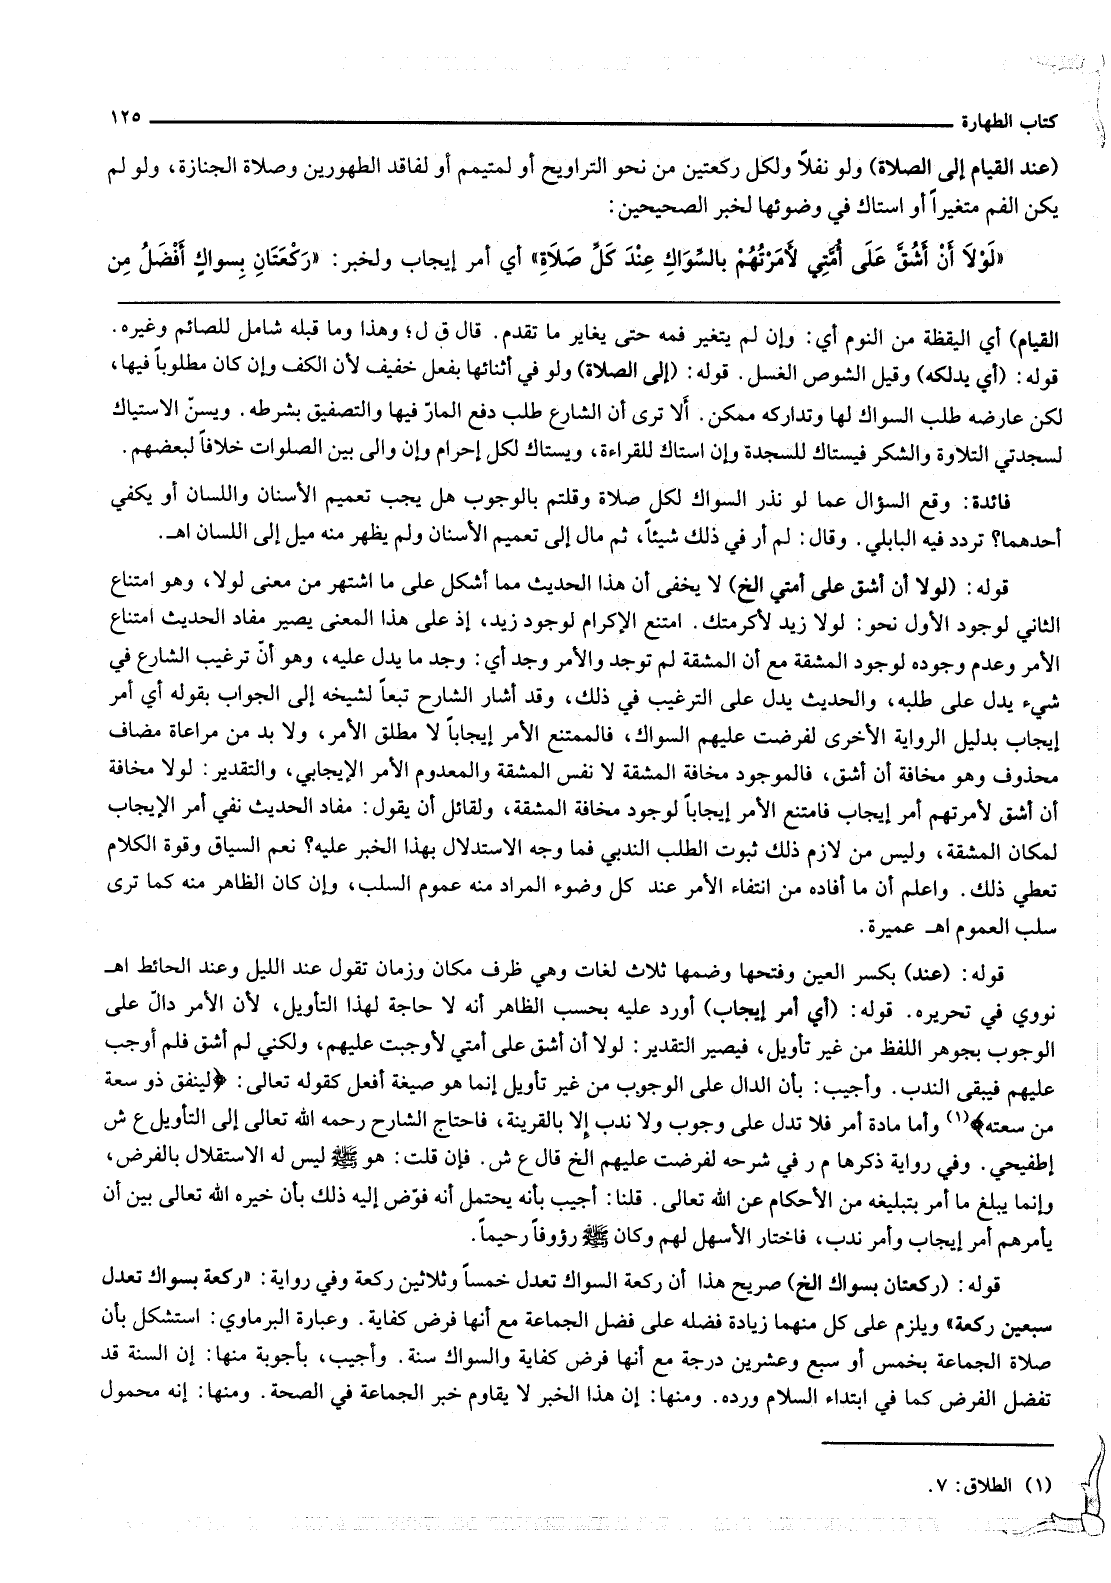 كتاب الطهارة ١٢٥
(عند القيام إلى الصلاة) ولو نفلاً ولكل ركعتين من نحو التراويح أو لمتيمم أو لفاقد الطهورين وصلاة الجنازة، ولو لم
يكن الفم متغيراً أو استاك في وضوئها لخبر الصحيحين:
«لَوْلاَ أَنْ أَشُقَّ عَلَى أُمَّتِي لأَمَرْتُهُمْ بالسِّوَاكِ عِنْدَ كَلِّ صَلاَةٍ» أي أمر إيجاب ولخبر: «رَكْعَتَانِ بِسواكٍ أَفْضَلُ مِن
القيام) أي اليقظة من النوم أي: وإن لم يتغير فمه حتى يغاير ما تقدم. قال ق ل؛ وهذا وما قبله شامل للصائم وغيره.
قوله: (أي يدلكه) وقيل الشوص الغسل. قوله: (إلى الصلاة) ولو في أثنائها بفعل خفيف لأن الكف وإن كان مطلوباً فيها،
لكن عارضه طلب السواك لها وتداركه ممكن. ألا ترى أن الشارع طلب دفع المارّ فيها والتصفيق بشرطه. ويسنّ الاستياك
لسجدتي التلاوة والشكر فيستاك للسجدة وإن استاك للقراءة، ويستاك لكل إحرام وإن والى بين الصلوات خلافاً لبعضهم.
فائدة: وقع السؤال عما لو نذر السواك لكل صلاة وقلتم بالوجوب هل يجب تعميم الأسنان واللسان أو يكفي
أحدهما؟ تردد فيه البابلي. وقال: لم أر في ذلك شيئاً، ثم مال إلى تعميم الأسنان ولم يظهر منه ميل إلى اللسان اهـ.
قوله: (لولا أن أشق على أمتي الخ) لا يخفى أن هذا الحديث مما أشكل على ما اشتهر من معنى لولا، وهو امتناع
الثاني لوجود الأول نحو: لولا زيد لأكرمتك. امتنع الإكرام لوجود زيد، إذ على هذا المعنى يصير مفاد الحديث امتناع
الأمر وعدم وجوده لوجود المشقة مع أن المشقة لم توجد والأمر وجد أي: وجد ما يدل عليه، وهو أنّ ترغيب الشارع في
شيء يدل على طلبه، والحديث يدل على الترغيب في ذلك، وقد أشار الشارح تبعاً لشيخه إلى الجواب بقوله أي أمر
إيجاب بدليل الرواية الأخرى لفرضت عليهم السواك، فالممتنع الأمر إيجاباً لا مطلق الأمر، ولا بد من مراعاة مضاف
محذوف وهو مخافة أن أشق، فالموجود مخافة المشقة لا نفس المشقة والمعدوم الأمر الإيجابي، والتقدير: لولا مخافة
أن أشق لأمرتهم أمر إيجاب فامتنع الأمر إيجاباً لوجود مخافة المشقة، ولقائل أن يقول: مفاد الحديث نفي أمر الإيجاب
لمكان المشقة، وليس من لازم ذلك ثبوت الطلب الندبي فما وجه الاستدلال بهذا الخبر عليه؟ نعم السياق وقوة الكلام
تعطي ذلك. واعلم أن ما أفاده من انتفاء الأمر عند كل وضوء المراد منه عموم السلب، وإن كان الظاهر منه كما ترى
سلب العموم اهـ عميرة.
قوله: (عند) بكسر العين وفتحها وضمها ثلاث لغات وهي ظرف مكان وزمان تقول عند الليل وعند الحائط اهـ
نووي في تحريره. قوله: (أي أمر إيجاب) أورد عليه بحسب الظاهر أنه لا حاجة لهذا التأويل، لأن الأمر دالّ على
الوجوب بجوهر اللفظ من غير تأويل، فيصير التقدير: لولا أن أشق على أمتي لأوجبت عليهم، ولكني لم أشق فلم أوجب
عليهم فيبقى الندب. وأجيب: بأن الدال على الوجوب من غير تأويل إنما هو صيغة أفعل كقوله تعالى: ﴿لينفق ذو سعة
من سعته﴾(١) وأما مادة أمر فلا تدل على وجوب ولا ندب إلا بالقرينة، فاحتاج الشارح رحمه الله تعالى إلى التأويل ع ش
إطفيحي. وفي رواية ذكرها م ر في شرحه لفرضت عليهم الخ قال ع ش. فإن قلت: هو ﷺ ليس له الاستقلال بالفرض،
وإنما يبلغ ما أمر بتبليغه من الأحكام عن الله تعالى. قلنا: أجيب بأنه يحتمل أنه فوّض إليه ذلك بأن خيره الله تعالى بين أن
يأمرهم أمر إيجاب وأمر ندب، فاختار الأسهل لهم وكان ﷺ رؤوفاً رحيماً.
قوله: (ركعتان بسواك الخ) صريح هذا أن ركعة السواك تعدل خمساً وثلاثين ركعة وفي رواية: «ركعة بسواك تعدل
سبعين ركعة» ويلزم على كل منهما زيادة فضله على فضل الجماعة مع أنها فرض كفاية. وعبارة البرماوي: استشكل بأن
صلاة الجماعة بخمس أو سبع وعشرين درجة مع أنها فرض كفاية والسواك سنة. وأجيب، بأجوبة منها: إن السنة قد
تفضل الفرض كما في ابتداء السلام ورده. ومنها: إن هذا الخبر لا يقاوم خبر الجماعة في الصحة. ومنها: إنه محمول
(١) الطلاق: ٧.